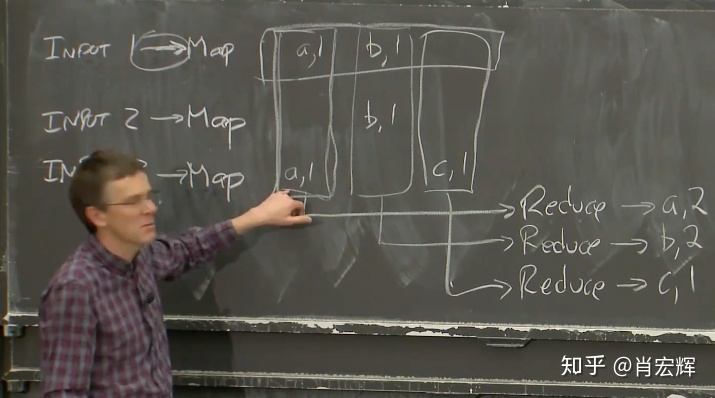 INPUT 1 → Map a,1 b,1
INPUT 2 → Map b,1
→ Map a,1 c,1
Reduce → a,2
Reduce → b,2
Reduce → c,1
知乎 @肖宏辉